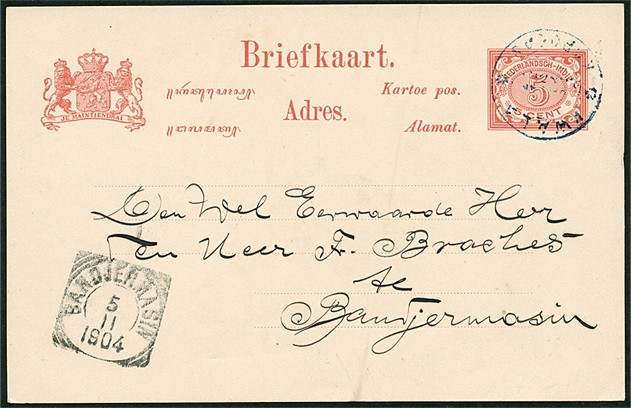 Briefkaart.
Kartoe pos.
Adres.
Alamat.
JE MAINTIENDRAI
NEDERLANDSCH-INDIË
5
5 CENT
Den Wel Eerwaarde Heer
Den Heer F. Braches
te
Bandjermasin
BANDJERMASIN
5
11
1904